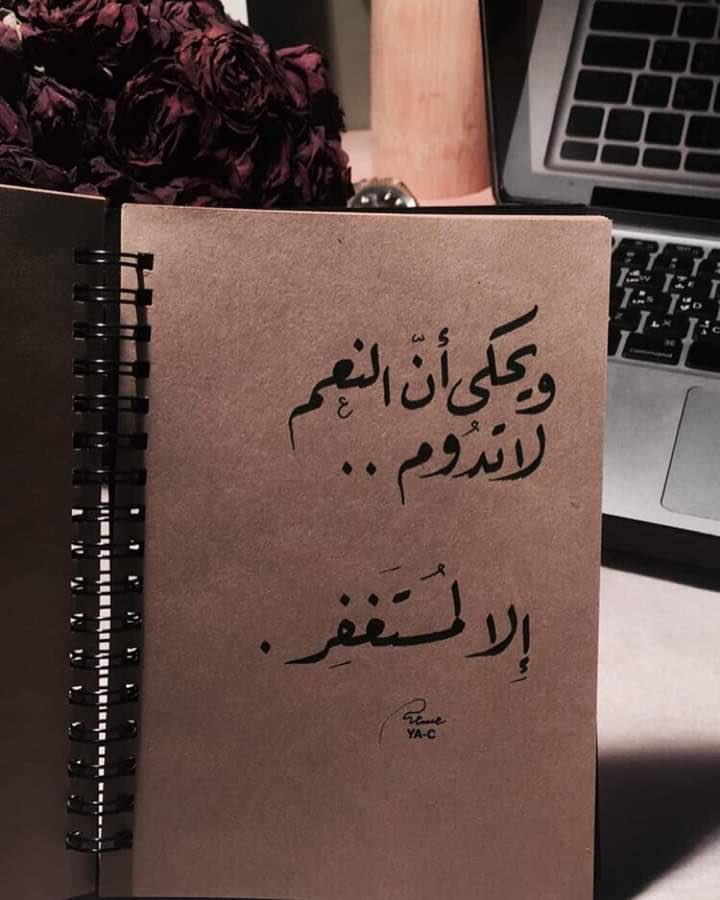 ويحكى أنّ النعم
لا تدُوم ..
إلا لمُستَغفِر .
YA-C
command